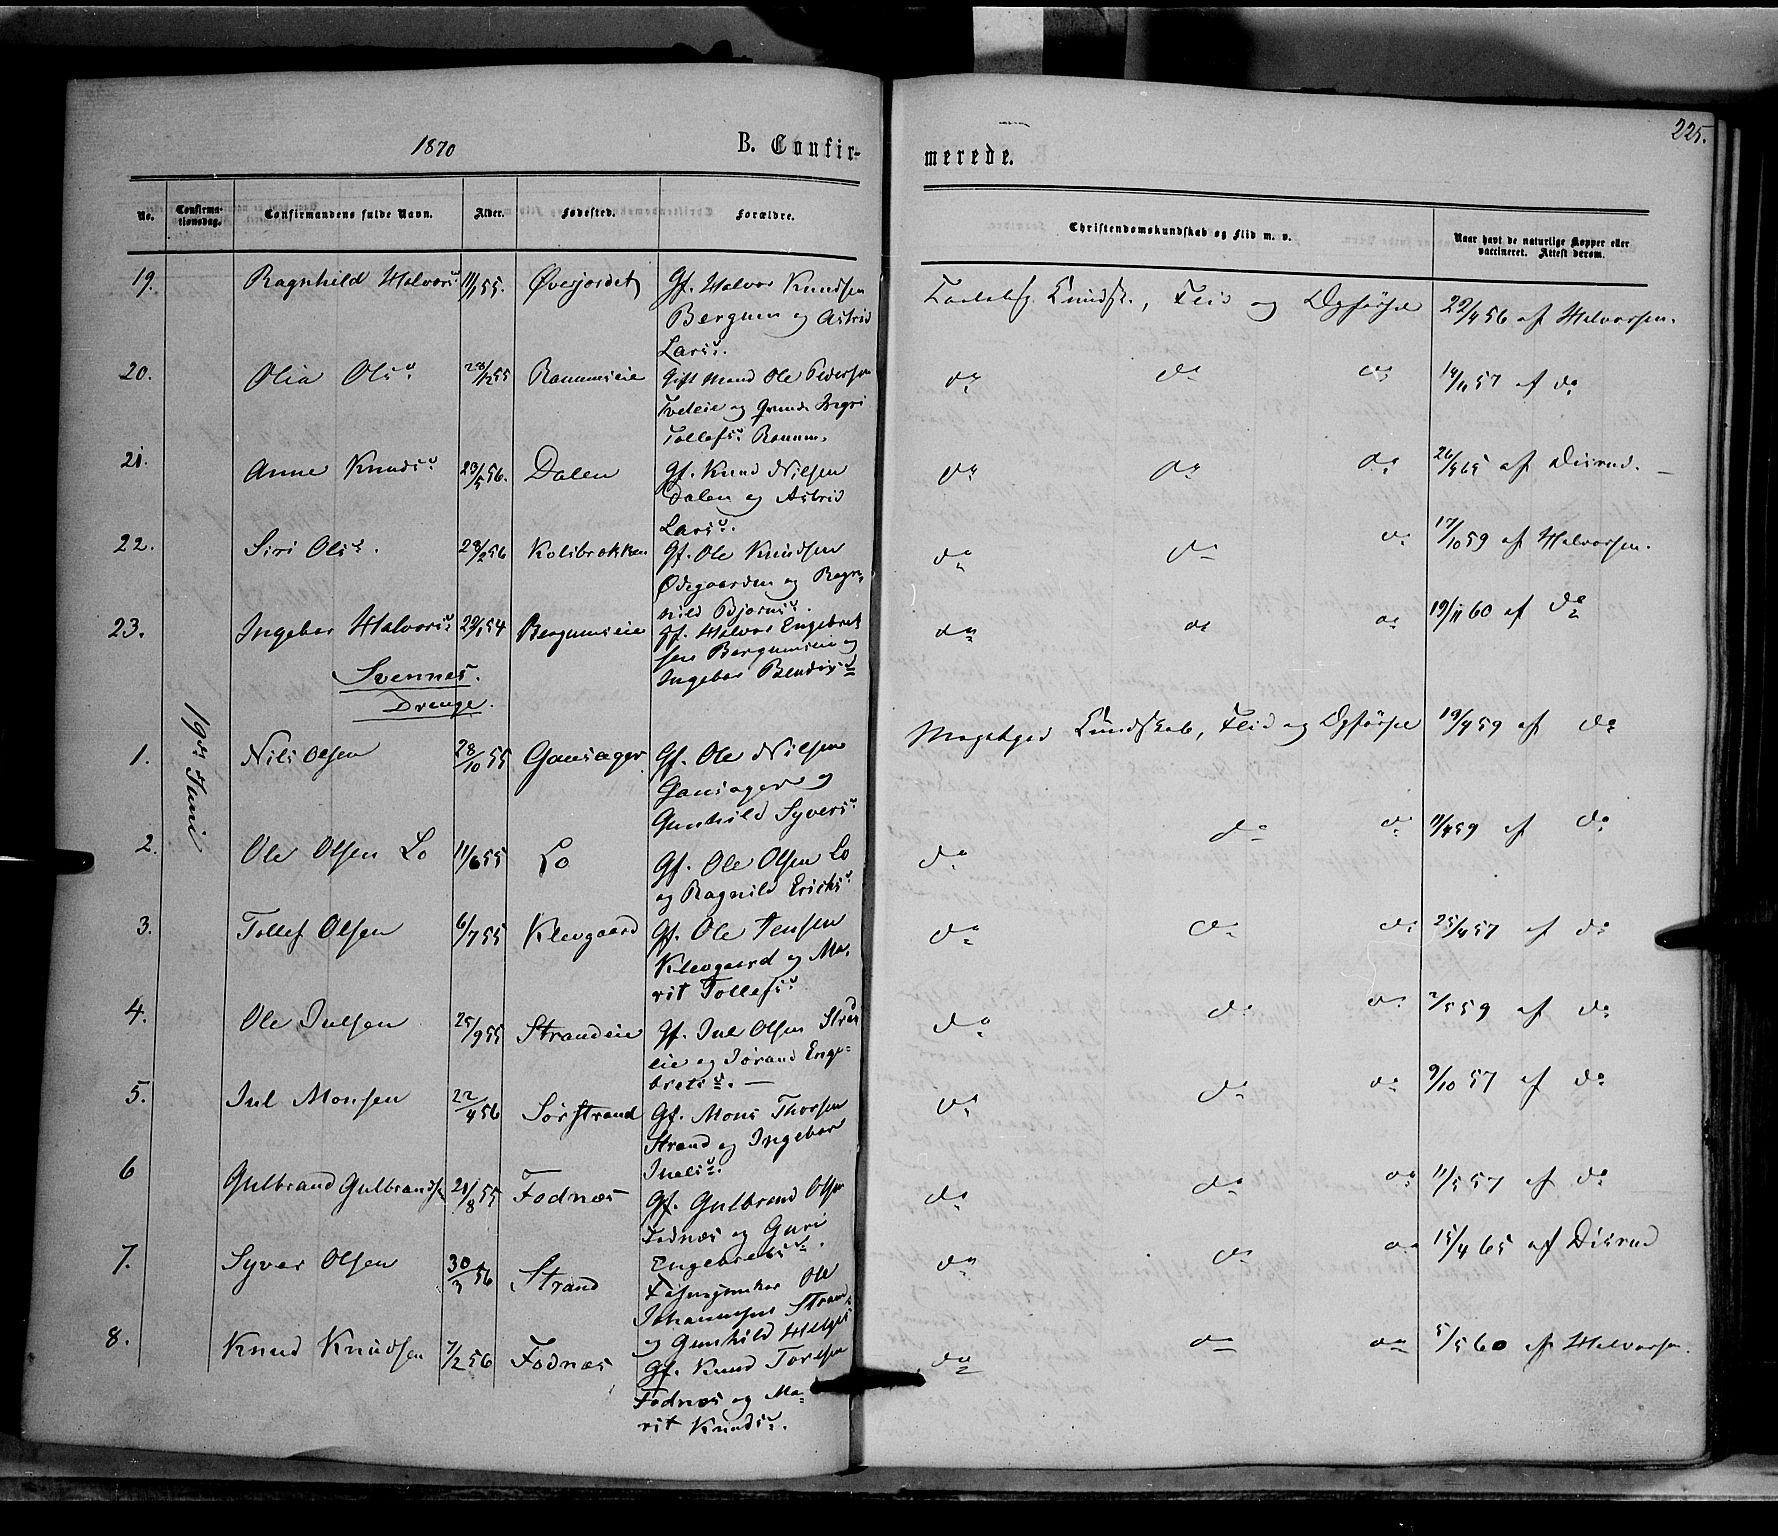 225.
1870
B. Confir-
merede.
No.
Confirma-
tionsdag.
Confirmandens fulde Navn.
Alder.
Fødested.
Forældre.
Christendomskundskab og Flid m. v.
Naar havt de naturlige Kopper eller
vaccineret. Attest derom.
19. Ragnhild Halvorsd. 11/1 55. Øvejordet Gf. Halvor Knudsen
Bergum og Astrid
Larsd.
Kundsk., Flid og Opførsel 22/4 56 af Halvorsen.
20. Olia Olsd. 28/12 55 Ranumseie Gift Mand Ole Pedersen
Tveteie og Ingri
Tollefsd. Ranum.
do do do 14/11 57 af do
21. Anne Knudsd. 23/5 56. Dalen Gf. Knud Nilsen
Dalen og Astrid
Larsd.
do do do 26/4 65 af Disrud.
22. Siri Olsd. 28/2 56 Kolibrokken Gf. Ole Knudsen
Ødegaarden og Ragn-
hild Bjørnsd.
do do do 17/10 59 af Halvorsen.
23. Ingebor Halvorsd. 29/1 54 Bergumseie Gf. Halvor Engebret
sen Bergumseie og
Ingebor Bendixd.
do do do 19/11 60 af do
Svennes.
Drenge.
19de Juni
1. Nils Olsen 28/10 55 Gausager Gf. Ole Nilsen
Gausager og
Gunhild Syversd.
Meget god Kundskab, Flid og Opførsel 19/4 59 af do
2. Ole Olsen Lo 11/6 55 Lo Gf. Ole Olsen Lo
og Ragnild Ericksd.
do do do 11/4 59 af do
3. Tollef Olsen 6/7 55 Klevgaard Gf. Ole Jensen
Klevgaard og Ma-
rit Tollefsd.
do do do 25/4 57 af do
4. Ole Julsen 25/9 55 Strandeie Gf. Jul Olsen Strand
eie og Jørand Enge-
bretsd.
do do do 2/5 59 af do
5. Jul Monsen 22/4 56 Sørstrand Gf. Mons Thorsen
Strand og Ingebor
Juelsd.
do do do 9/10 57 af do
6 Gulbrand Gulbrandsen 21/8 55 Fodnæs Gf. Gulbrand Olsen
Fodnæs og Guri
Engebretsd.
do do do 11/5 57 af do
7. Syver Olsen 30/3 56 Strand Ole
Johannesen Strand
og Gunhild Helgesd.
do do do 15/4 65 af Disrud
8. Knud Knudsen 7/2 56 Fodnæs Gf. Knud Toresen
Fodnæs og Ma-
rit Knudsd.
do do do 5/5 60 af Halvorsen.